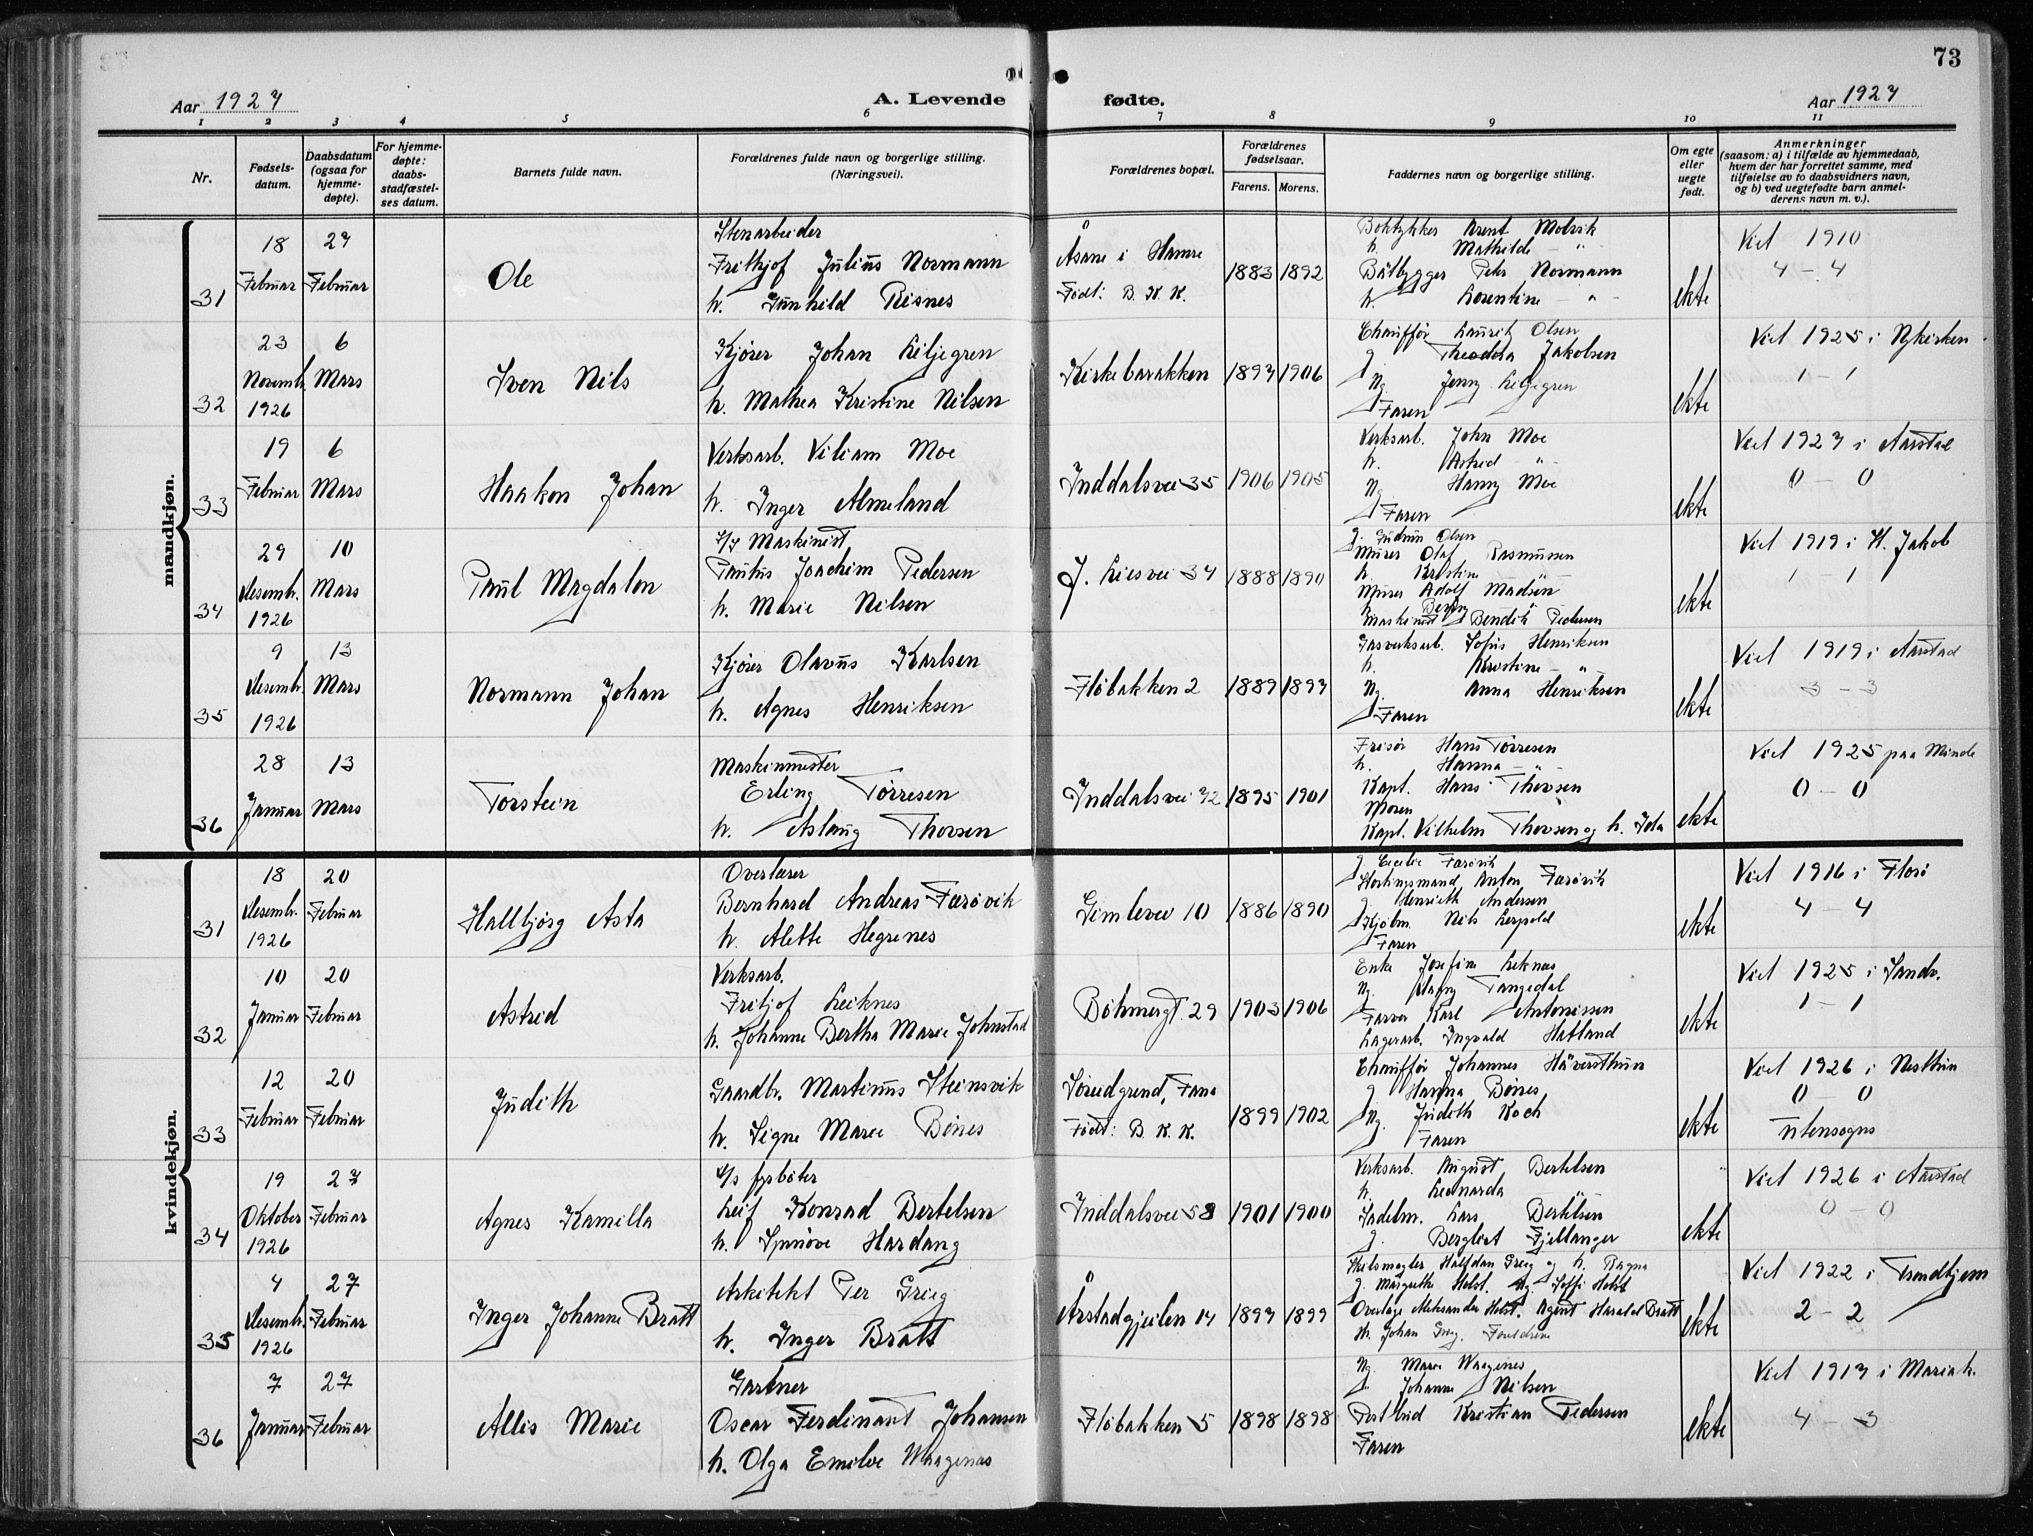 73
Aar 1927
A. Levende fødte.
Aar 1927
1 2 3 4 5 6 7 8 9 10 11
Nr.
Fødsels-
datum.
Daabsdatum
(ogsaa for
hjemme-
døpte).
For hjemme-
døpte:
daabs-
stadfæstel-
ses datum.
Barnets fulde navn.
Forældrenes fulde navn og borgerlige stilling.
(Næringsvei).
Forældrenes bopæl.
Forældrenes
fødselsaar.
Farens. Morens.
Faddernes navn og borgerlige stilling.
Om egte
eller
uegte
født.
Anmerkninger
(saasom: a) i tilfælde av hjemmedaab,
hvem der har forrettet samme, med
tilføielse av to daabsvidners navn,
og b) ved uegtefødte barn anmel-
derens navn m. v.).
mandkjøn.
31
18
Februar
27
Februar
Ole
Stenarbeider
Frithjof Julius Normann
h. Gunhild Risnes
Åsane i Hamre
Født: B. K. K.
1883 1892
Boktykker Arent Molvik
h. Mathilde - " -
Båtbygger Peter Normann
h. Lorentine - " -
ekte
Viet 1910
4 - 4
32
23
Novemb.
1926
6
Mars
Sven Nils
Kjører Johan Liljegren
h. Mathea Kristine Nilsen
Kirkebarakken
1897 1906
Chauffør Lauritz Olsen
g. Theodora Jakobsen
Ug. Jenny Liljegren
Faren
ekte
Viet 1925 i Nykirken
1 - 1
33
19
Februar
6
Mars
Haakon Johan
Verksarb. Viliam Moe
h. Inger Almeland
Inddalsvei 35
1906 1905
Verksarb. John Moe
h. Astrid - " -
Ug. Hanny Moe
Faren
ekte
Viet 1927 i Aarstad
0 - 0
34
29
Desemb.
1926
10
Mars
Paul Magdalon
S/S Maskinist
Paulus Joachim Pedersen
h. Marie Nilsen
J. Liesvei 34
1888 1890
g. Gudrun Olsen
Murer Olaf Rasmussen
h. Kristine - " -
Murer Adolf Madsen
h. Berny
Maskinist Bendik Pedersen
ekte
Viet 1919 i St. Jakob
1 - 1
35
9
Desemb.
1926
13
Mars
Normann Johan
Kjører Olavus Karlsen
h. Agnes Henriksen
Fløbakken 2
1889 1897
Gasverksarb. Sofus Henriksen
h. Kristine - " -
Ug. Anna Henriksen
Faren
ekte
Viet 1919 i Aarstad
3 - 3
36
28
Januar
13
Mars
Torstein
Maskinmester
Erling Tørresen
h. Aslaug Thorsen
Inddalsvei 32
1895 1901
Frisør Hans Tørresen
h. Hanna - " -
Kapt. Hans Thorsen
Moren
Kapt. Vilhelm Thorsen og h. Ida
ekte
Viet 1925 paa Minde
0 - 0
kvindekjøn.
31
18
Desemb.
1926
20
Februar
Hallbjørg Asta
Overlærer
Bernhard Andreas Færøvik
h. Alette Hegrenes
Gimlevei 10
1886 1890
g. Cecilie Færøvik
Stortingsmand Anton Færøvik
g. Henriette Andersen
Kjøbm. Nils Lerpold
Faren
ekte
Viet 1916 i Florø
4 - 4
32
10
Januar
20
Februar
Astrid
Verksarb.
Fritjof Leiknes
h. Johanne Bertha Marie Johnstad
Bøhmergt. 29
1903 1906
Enke Josefine Leknes
Ug. Magny Tangedal
Farver Karl Antonissen
Lagerarb. Ingvald Hatland
ekte
Viet 1925 i Sandv.
1 - 1
33
12
Februar
20
Februar
Judith
Gaardbr. Martinus Steinsvik
h. Signe Marie Bønes
Søreidgrend, Fana
Født: B. K. K.
1899 1902
Chauffør Johannes Håversthun
g. Hanna Bønes
Ug. Judith Koch
Faren
ekte
Viet 1926 i Nesttun
0 - 0
utensogns
34
19
Oktober
1926
27
Februar
Agnes Kamilla
S/s fyrbøter
Leif Konrad Bertelsen
h. Synnøve Hardang
Inddalsvei 58
1901 1900
Verksarb. August Bertelsen
h. Leonarda
Sadelm. Lars Bertelsen
g. Bergljot Fjellanger
ekte
Viet 1926 i Aarstad
0 - 0
35
4
Desemb.
1926
27
Februar
Inger Johanne Bratt
Arkitekt Per Grieg
h. Inger Bratt
Årstadgjeilen 14
1897 1899
Skibsmegler Halfdan Grieg og h. Ragna
g. Margrethe Holst. Ug. Soffi Holst
Overlæge Aleksander Holst. Agent Harald Bratt
St. Johan Grieg. Foreldrene
ekte
Viet 1922 i Trondhjem
2 - 2
36
7
Januar
27
Februar
Allis Marie
Gartner
Oscar Ferdinant Johansen
h. Olga Emilie Waagenas
Fløbakken 5
1898 1898
Ug. Marie Waagenes
g. Johanne Nilsen
Postbud Kristian Pedersen
Faren
ekte
Viet 1917 i Mariak.
4 - 3